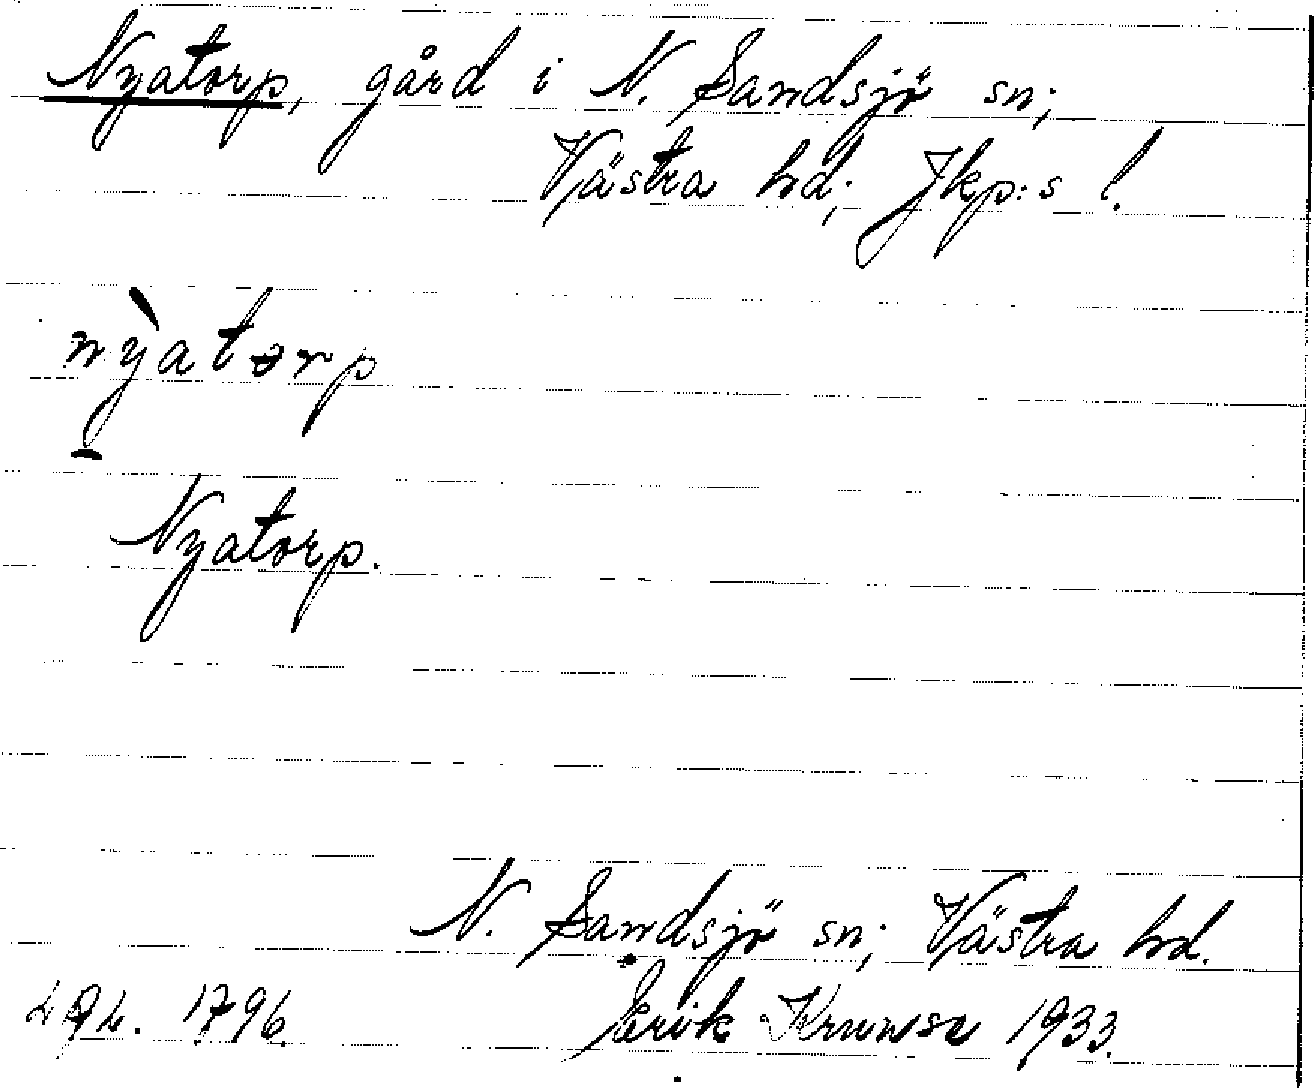 Nyatorp, gård i N. Sandsjö sn;
Västra hd; Jkp:s l.
nyatorp
Nyatorp.
N. Sandsjö sn; Västra hd.
1796. Erik 1933.